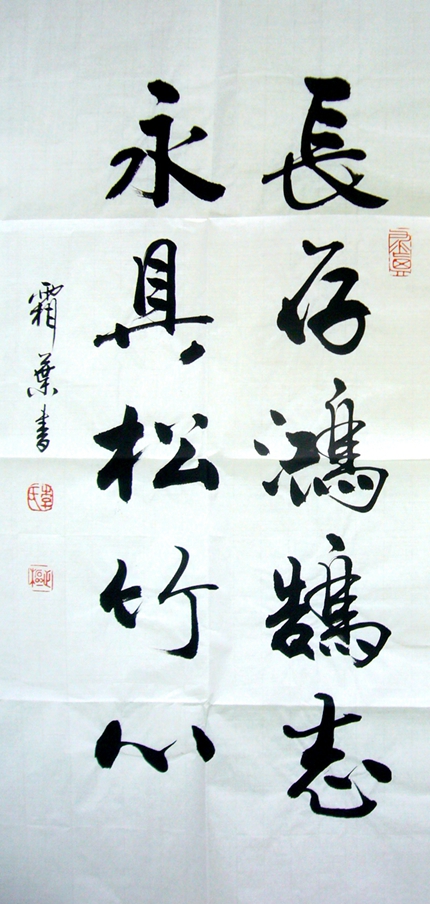 長存鴻鵠志
永具松竹心
霜葉書